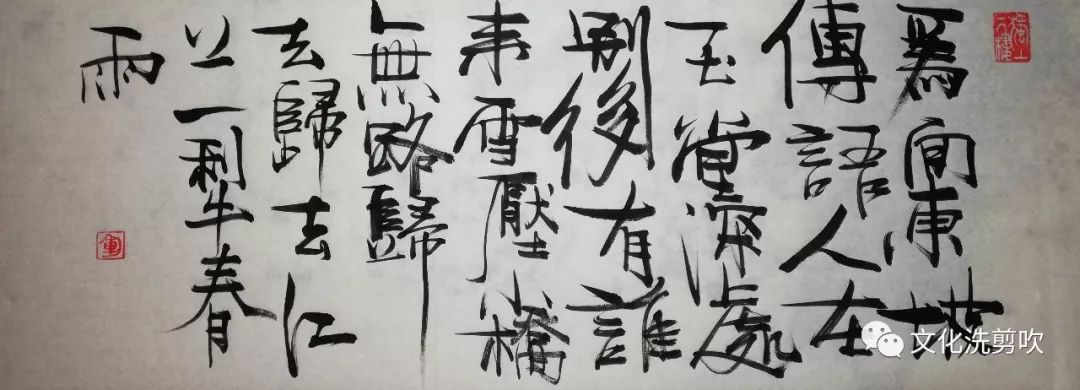 爲向東坡
傳語人在
玉堂深處
別後有誰
來雪壓小橋
無路歸
去歸去江
上一犁春
雨
文化洗剪吹